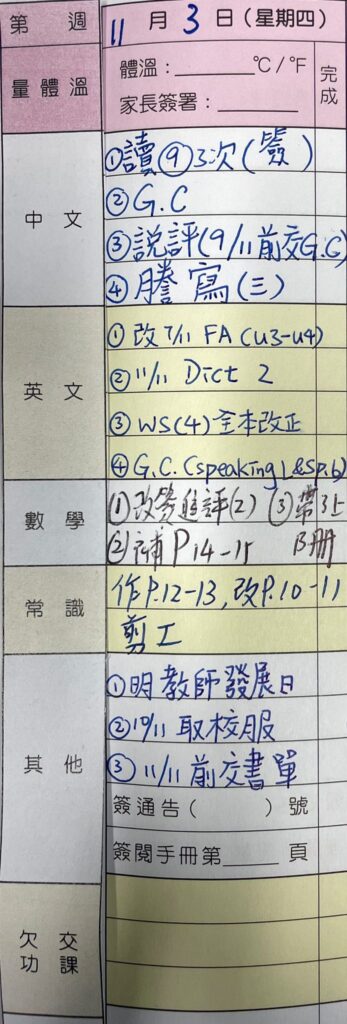 第 週 11 月 3 日 (星期四)
量體溫 體溫：______ ℃/℉ 完成
家長簽署：______
中文 ①讀⑨3次(簽)
②G.C
③説評(9/11前交G.C)
④謄寫(三)
英文 ①改7/11 FA (u3-u4)
②11/11 Dict 2
③WS(4)全本改正
④G.C.(speaking1&sp.6)
數學 ①改簽進評(2) ③帶3上
②補P14-15 B册
常識 作P.12-13,改P.10-11
剪工
其他 ①明教師發展日
②10/11 取校服
③11/11前交書單
簽通告( )號
簽閱手冊第____頁
欠交功課